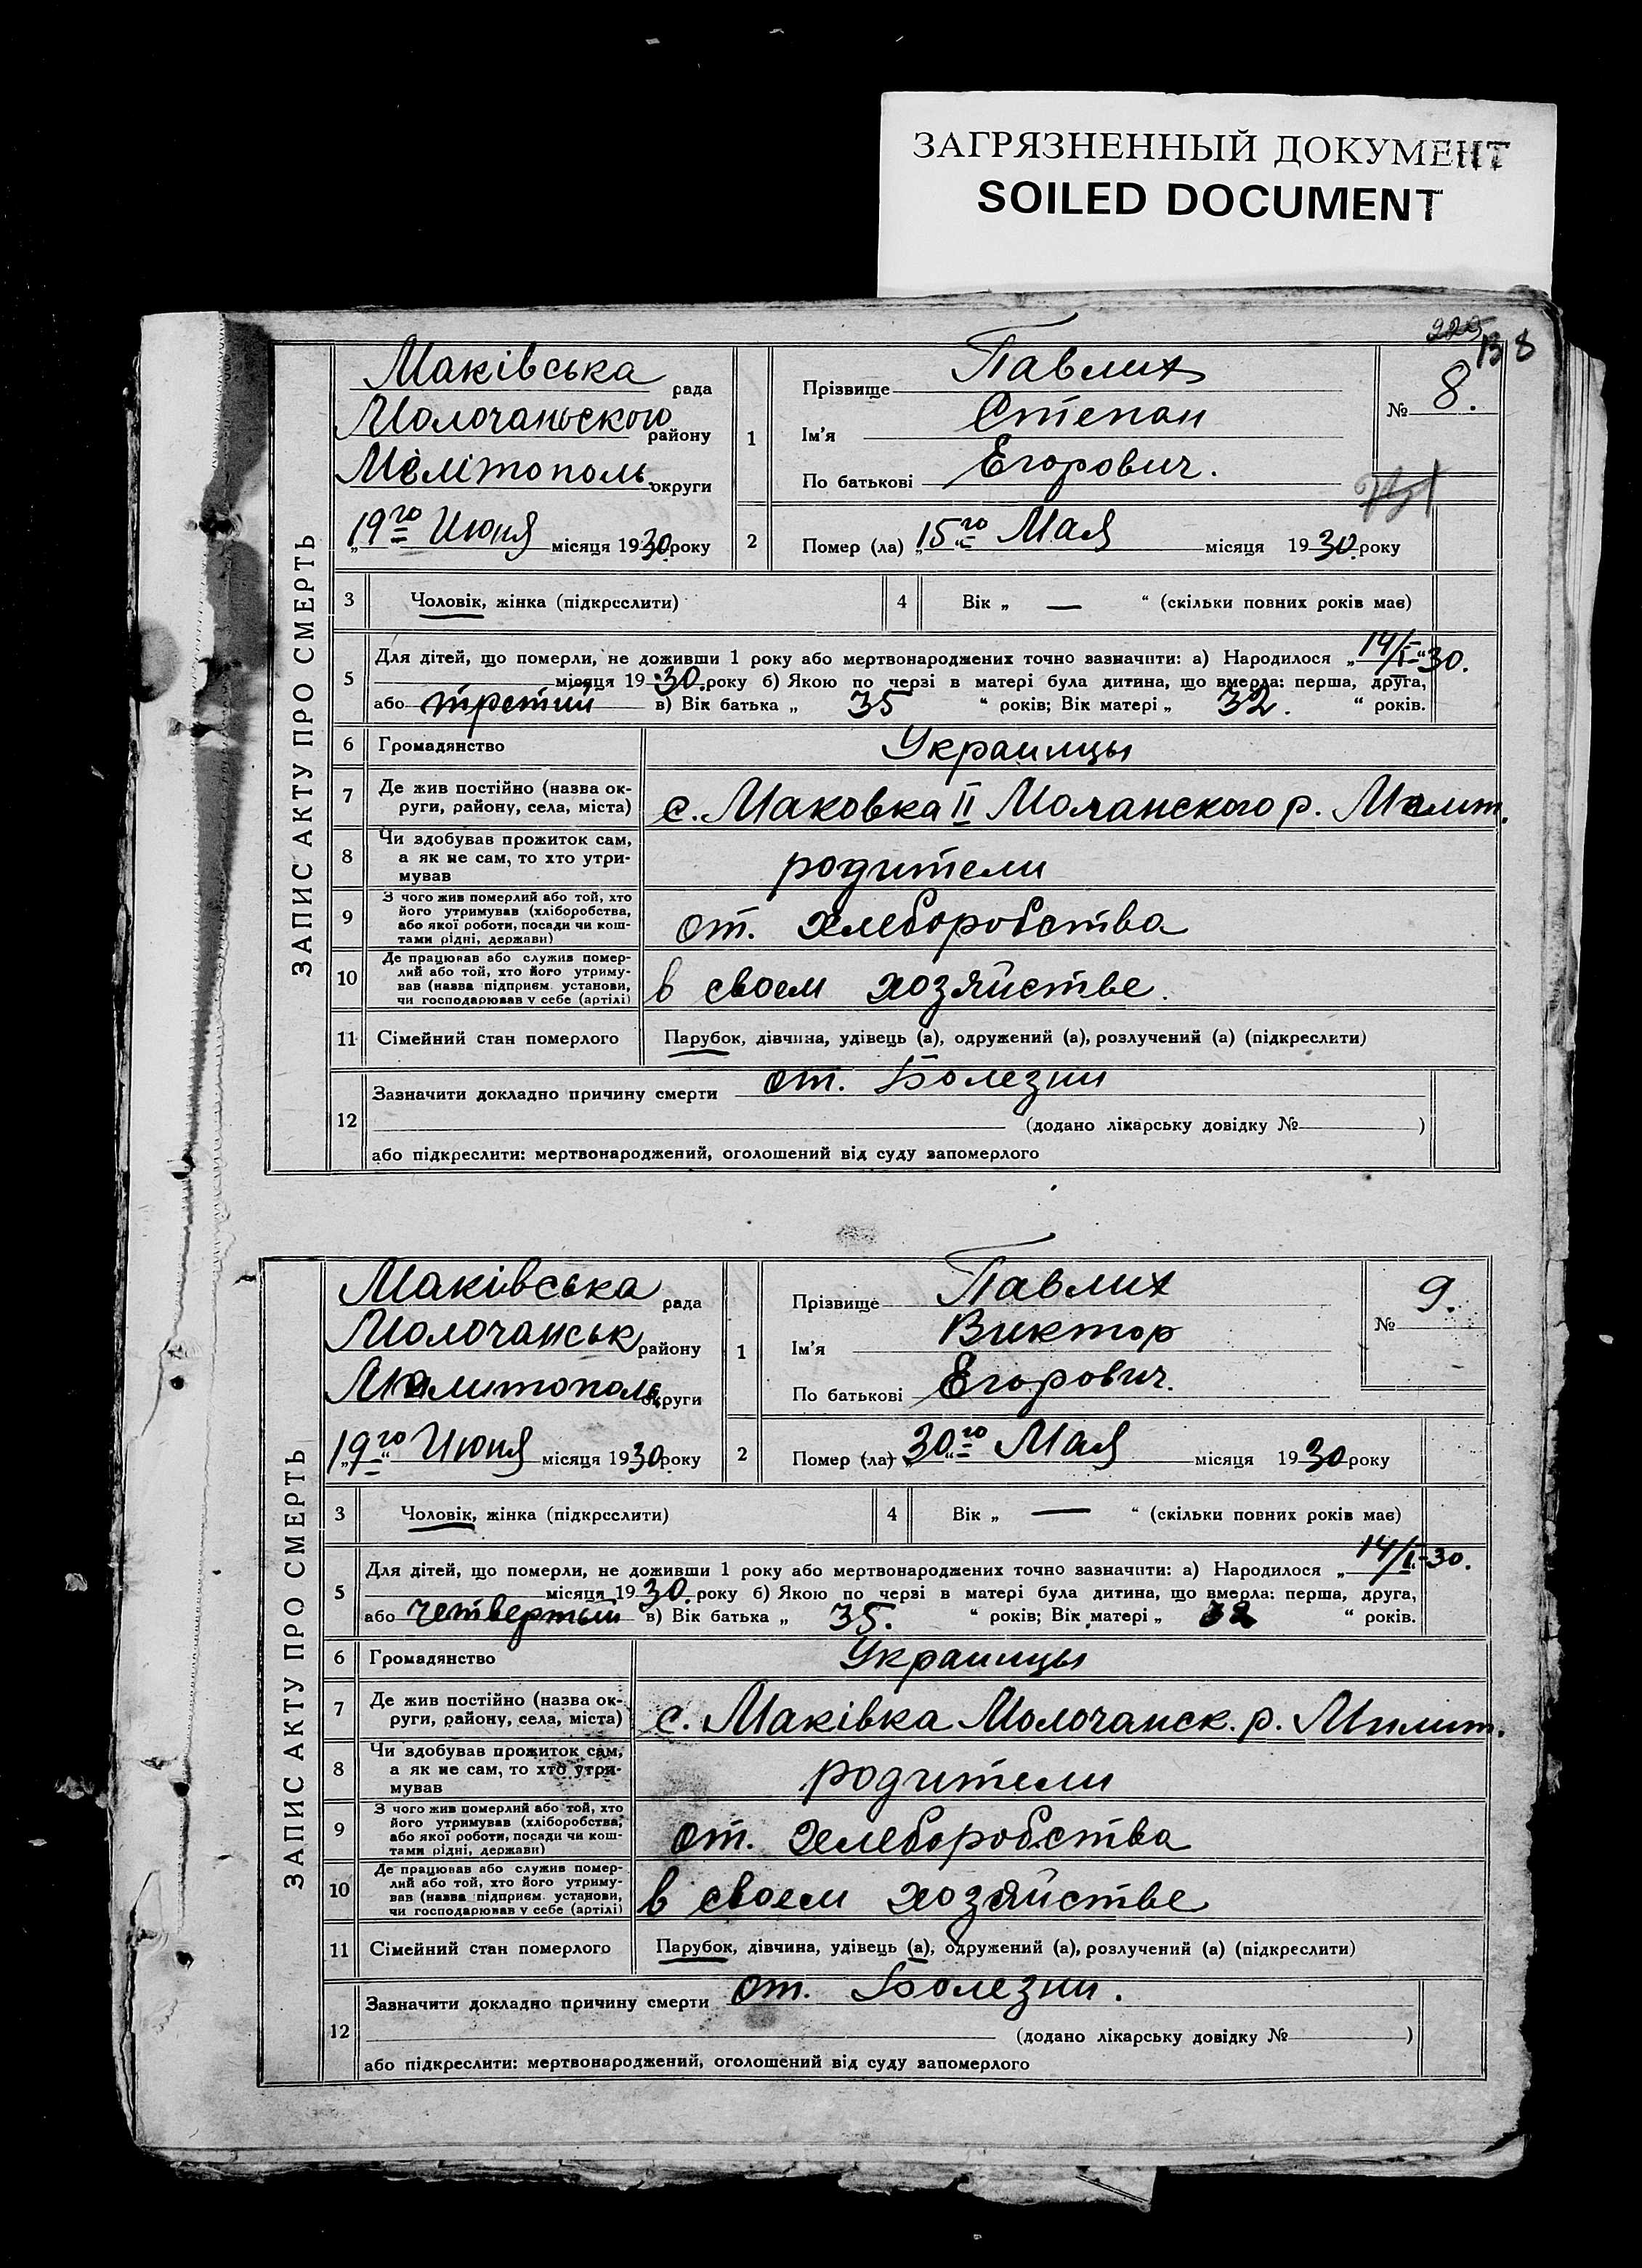 ЗАГРЯЗНЕННЫЙ ДОКУМЕНТ
SOILED DOCUMENT
В 8
ЗАПИС АКТУ ПРО СМЕРТЬ
Маківська рада
Молочаньского району
Мелітополь округи
„19го Июня місяця 1930 року
1
Прізвище Павлих
Ім'я Степан
По батькові Егорович.
№ 8.
2
Помер (ла) „15го“ Мая місяця 1930. року
3 Чоловік, жінка (підкреслити)
4 Вік „ — “ (скільки повних років має)
5
Для дітей, що померли, не доживши 1 року або мертвонароджених точно зазначити: а) Народилося „14/I“ 30.
місяця 1930. року б) Якою по черзі в матері була дитина, що вмерла: перша, друга,
або третий в) Вік батька „ 35 “ років; Вік матері „ 32. “ років.
6 Громадянство Украинцы
7 Де жив постійно (назва ок-
руги, району, села, міста) с. Маковка II Молчанского р. Мелит.
8 Чи здобував прожиток сам,
а як не сам, то хто утри-
мував родители
9 З чого жив померлий або той, хто
його утримував (хліборобства,
або якої роботи, посади чи кош-
тами рідні, держави) от. хлеборобства
10 Де працював або служив помер-
лий або той, хто його утриму-
вав (назва підприєм. установи,
чи господарював у себе (артілі) в своем хозяйстве.
11 Сімейний стан померлого Парубок, дівчина, удівець (а), одружений (а), розлучений (а) (підкреслити)
12 Зазначити докладно причину смерти от. Болезни
(додано лікарську довідку № )
або підкреслити: мертвонароджений, оголошений від суду запомерлого
ЗАПИС АКТУ ПРО СМЕРТЬ
Маківська рада
Молочанськ району
Мелитополь округи
„19го“ Июня місяця 1930. року
1
Прізвище Павлих
Ім'я Виктор
По батькові Егорович.
№ 9.
2
Помер (ла) „30го“ Мая місяця 1930 року
3 Чоловік, жінка (підкреслити)
4 Вік „ — “ (скільки повних років має)
5
Для дітей, що померли, не доживши 1 року або мертвонароджених точно зазначити: а) Народилося „14/I“-30.
місяця 1930. року б) Якою по черзі в матері була дитина, що вмерла: перша, друга,
або четвертый в) Вік батька „ 35. “ років; Вік матері „ 32 “ років.
6 Громадянство Украинцы
7 Де жив постійно (назва ок-
руги, району, села, міста) с. Маківка Молочанск. р. Милит.
8 Чи здобував прожиток сам,
а як не сам, то хто утри-
мував родители
9 З чого жив померлий або той, хто
його утримував (хліборобства,
або якої роботи, посади чи кош-
тами рідні, держави) от. хлеборобства
10 Де працював або служив помер-
лий або той, хто його утриму-
вав (назва підприєм. установи,
чи господарював у себе (артілі) в своем хозяйстве
11 Сімейний стан померлого Парубок, дівчина, удівець (а), одружений (а), розлучений (а) (підкреслити)
12 Зазначити докладно причину смерти от. Болезни.
(додано лікарську довідку № )
або підкреслити: мертвонароджений, оголошений від суду запомерлого